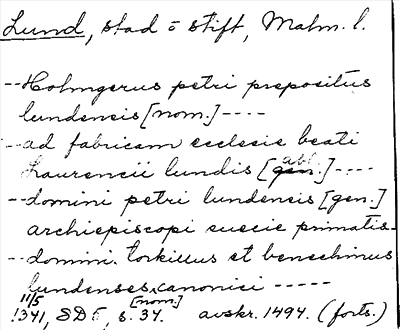 Lund, stad o stift, Malm. l.
-- Holmgerus petri prepositus
lundensis [nom.] ----
-- ad fabricam ecclesie beati
Laurencii lundis [gen. abl.] ----
-- domini petri lundensis [gen.]
archiepiscopi suecie primatis --
-- domini torkillus et benechinus
lundenses [nom.] canonici -----
11/5 1341, SD 5, s. 34. avskr. 1494. (forts.)